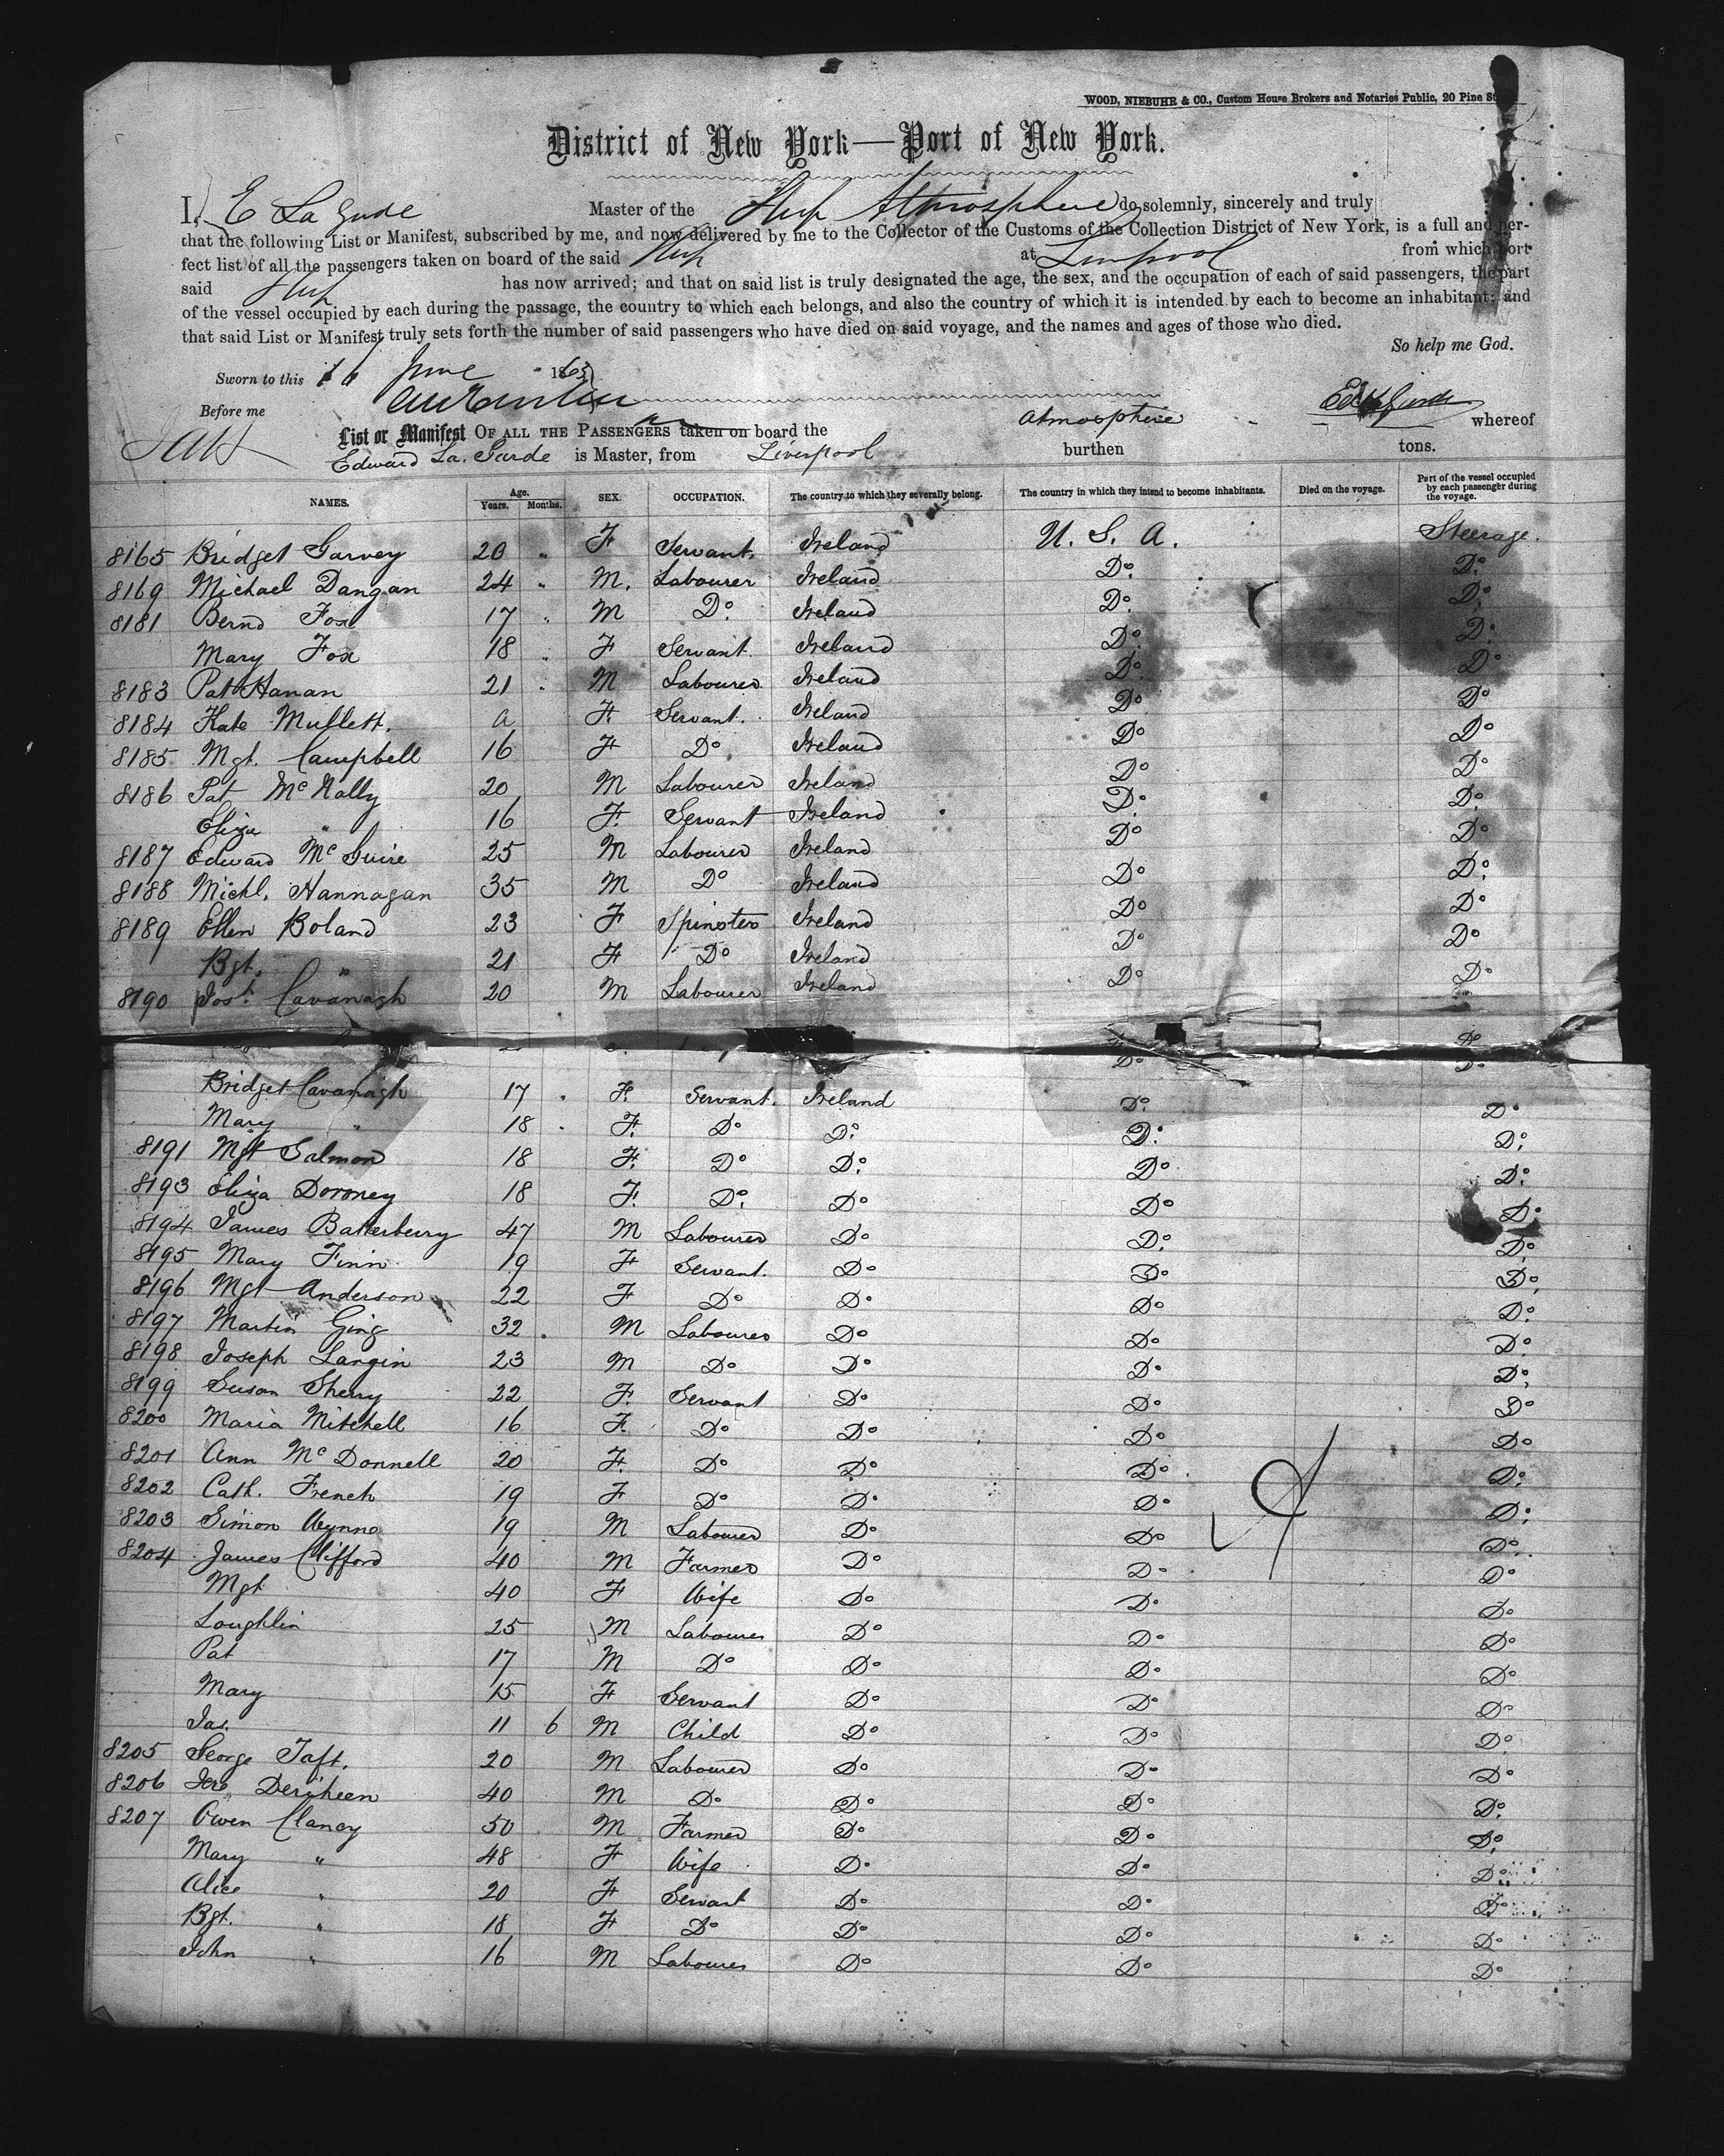 WOOD, NIEBUHR & CO., Custom House Brokers and Notaries Public, 20 Pine
District of New York—Port of New York.
I, E La Garde Master of the Ship Atmosphere do solemnly, sincerely and truly
that the following List or Manifest, subscribed by me, and now delivered by me to the Collector of the Customs of the Collection District of New York, is a full and per-
fect list of all the passengers taken on board of the said Ship at Liverpool from which port
said Ship has now arrived; and that on said list is truly designated the age, the sex, and the occupation of each of said passengers, the part
of the vessel occupied by each during the passage, the country to which each belongs, and also the country of which it is intended by each to become an inhabitant; and
that said List or Manifest truly sets forth the number of said passengers who have died on said voyage, and the names and ages of those who died.
So help me God.
Sworn to this June 1863
Before me
List or Manifest OF ALL THE PASSENGERS taken on board the Atmosphere whereof
Edward La. Garde is Master, from Liverpool burthen tons.
NAMES. Age. Years. Months. SEX. OCCUPATION. The country to which they severally belong. The country in which they intend to become inhabitants. Died on the voyage. Part of the vessel occupied by each passenger during the voyage.
8165 Bridget Garvey 20 " F Servant. Ireland U. S. A. Steerage.
8169 Michael Dangan 24 " M. Labourer Ireland Do. Do.
8181 Bernd Fox 17 " M Do. Ireland Do. Do.
Mary Fox 18 " F Servant Ireland Do. Do.
8183 Pat Hanan 21 " M Labourer Ireland Do. Do.
8184 Kate Mullett. a F. Servant. Ireland Do Do
8185 Mgt. Campbell 16 F Do. Ireland Do Do
8186 Pat McNally 20 M Labourer Ireland Do Do
Eliza " 16 F. Servant Ireland Do. Do.
8187 Edward McGuire 25 M Labourer Ireland Do Do
8188 Michl. Hannagan 35 M Do Ireland Do Do.
8189 Ellen Boland 23 F Spinster Ireland Do Do
Bgt. " 21 F Do Ireland Do Do
8190 Josh. Cavanagh 20 M Labourer Ireland Do Do
Do. Do.
Bridget Cavanagh 17 " F. Servant. Ireland Do. Do.
Mary " 18 " F. Do Do. Do. Do.
8191 Mgt Salmon 18 F. Do Do. Do Do.
8193 Eliza Doroney 18 F. Do. Do Do Do.
8194 James Batterberry 47 M Labourer Do Do. Do.
8195 Mary Finn 19 F Servant. Do Do Do.
8196 Mgt Anderson 22 F Do Do Do Do.
8197 Martin Ging 32 . M Labourer Do Do Do.
8198 Joseph Langin 23 M Do Do Do Do.
8199 Susan Sherry 22 F. Servant Do Do Do
8200 Maria Mitchell 16 F. Do Do Do Do
8201 Ann McDonnell 20 F. Do Do Do Do.
8202 Cath. French 19 F Do Do Do Do.
8203 Simon Wynne 19 M Labourer Do Do Do.
8204 James Clifford 40 M Farmer Do Do Do
Mgt 40 F Wife Do Do Do
Loughlin 25 M Labourer Do Do Do
Pat 17 M Do Do Do Do
Mary 15 F Servant Do Do Do
Jas. 11 6 M Child Do Do Do
8205 George Taft. 20 M Labourer Do Do Do
8206 Jere Deriheen 40 M Do Do Do Do.
8207 Owen Clancy 50 M Farmer Do Do Do.
Mary " 48 F Wife Do Do Do.
Alice " 20 F Servant Do Do Do
Bgt. " 18 F Do Do Do Do
John " 16 M Labourer Do Do Do